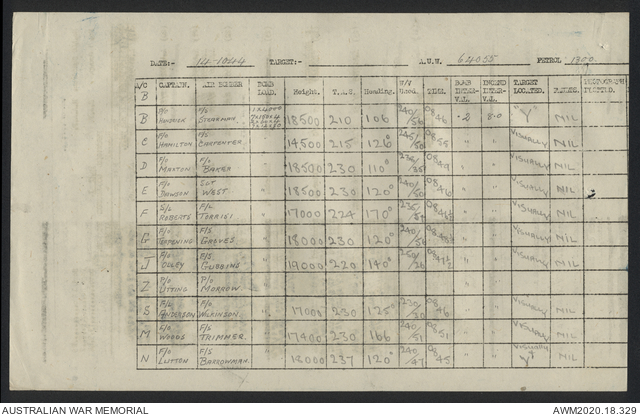 DATE:- 14-10-44 TARGET:- A.U.W. 64055 PETROL 1300
A/C CAPTAIN. AIR BOMBER BOMB LOAD. Height. T.A.S. Heading. W/V Used. TIME. BOMB INTERVAL. INCEND INTERVAL. TARGET LOCATED. PHOTOGRAPH PLOTTED.
B
B F/O F/S STEARMAN 18500 210 106 240/56 0846 .2 8.0 "Y" NIL
C F/O HAMILTON F/S CARPENTER " 14,500 215 126° 245/50 0855 " " VISUALLY NIL
D F/O MAXTON F/O BAKER " 18500 230 110° " " VISUALLY NIL
E F/O DAWSON SGT WEST " 18500 230 120° 240/50 0846 " " VISUALLY NIL
F S/L ROBERTS F/L " 17000 224 170° " " VISUALLY NIL
G F/O F/S GROVES " 18000 230 120° 240/56 " " VISUALLY NIL
J F/O OLLEY F/S GUBBINS " 19000 220 140° 250/26 " " VISUALLY NIL
Z F/O UTTING P/O MORROW " " "
S F/L ANDERSON F/O WILKINSON " 17000 230 125° 230/20 0846 " " VISUALLY NIL
M F/O WOODS F/S TRIMMER " 17400 230 166 240/51 0851 " " VISUALLY NIL
N F/O LUTTON F/S BARROWMAN " 18000 237 120° 240/47 0845 " " VISUALLY "Y" NIL
AUSTRALIAN WAR MEMORIAL AWM2020.18.329